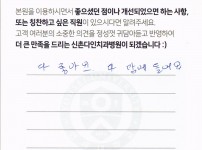 본원을 이용하시면서 좋으셨던 점이나 개선되었으면 하는 사항,
또는 칭찬하고 싶은 직원이 있으시다면 알려주세요.
고객 여러분의 소중한 의견을 정성껏 귀담아듣고 반영하여
더 큰 만족을 드리는 신촌다인치과병원이 되겠습니다 :)
다 좋아요 다 맘에 들어요